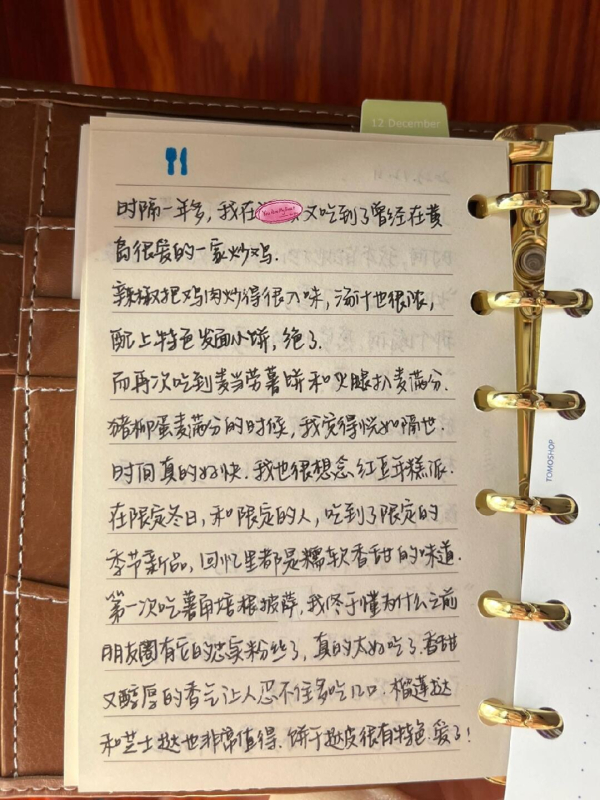 12 December
时隔一年多，我在 又吃到了曾经在黄
岛很爱的一家炒鸡.
辣椒把鸡肉炒得很入味，汤汁也很浓，
配上特色发面小饼，绝了.
而再次吃到麦当劳薯饼和火腿扒麦满分.
猪柳蛋麦满分的时候，我觉得恍如隔世.
时间真的好快.我也很想念红豆年糕派.
在限定冬日，和限定的人，吃到了限定的
季节新品，回忆里都是糯软香甜的味道.
第一次吃薯角培根披萨，我终于懂为什么之前
朋友圈有它的忠实粉丝了，真的太好吃了.香甜
又醇厚的香气让人忍不住多吃几口.榴莲挞
和芝士挞也非常值得.饼干挞皮很有特色.爱了！
TOMOSHOP